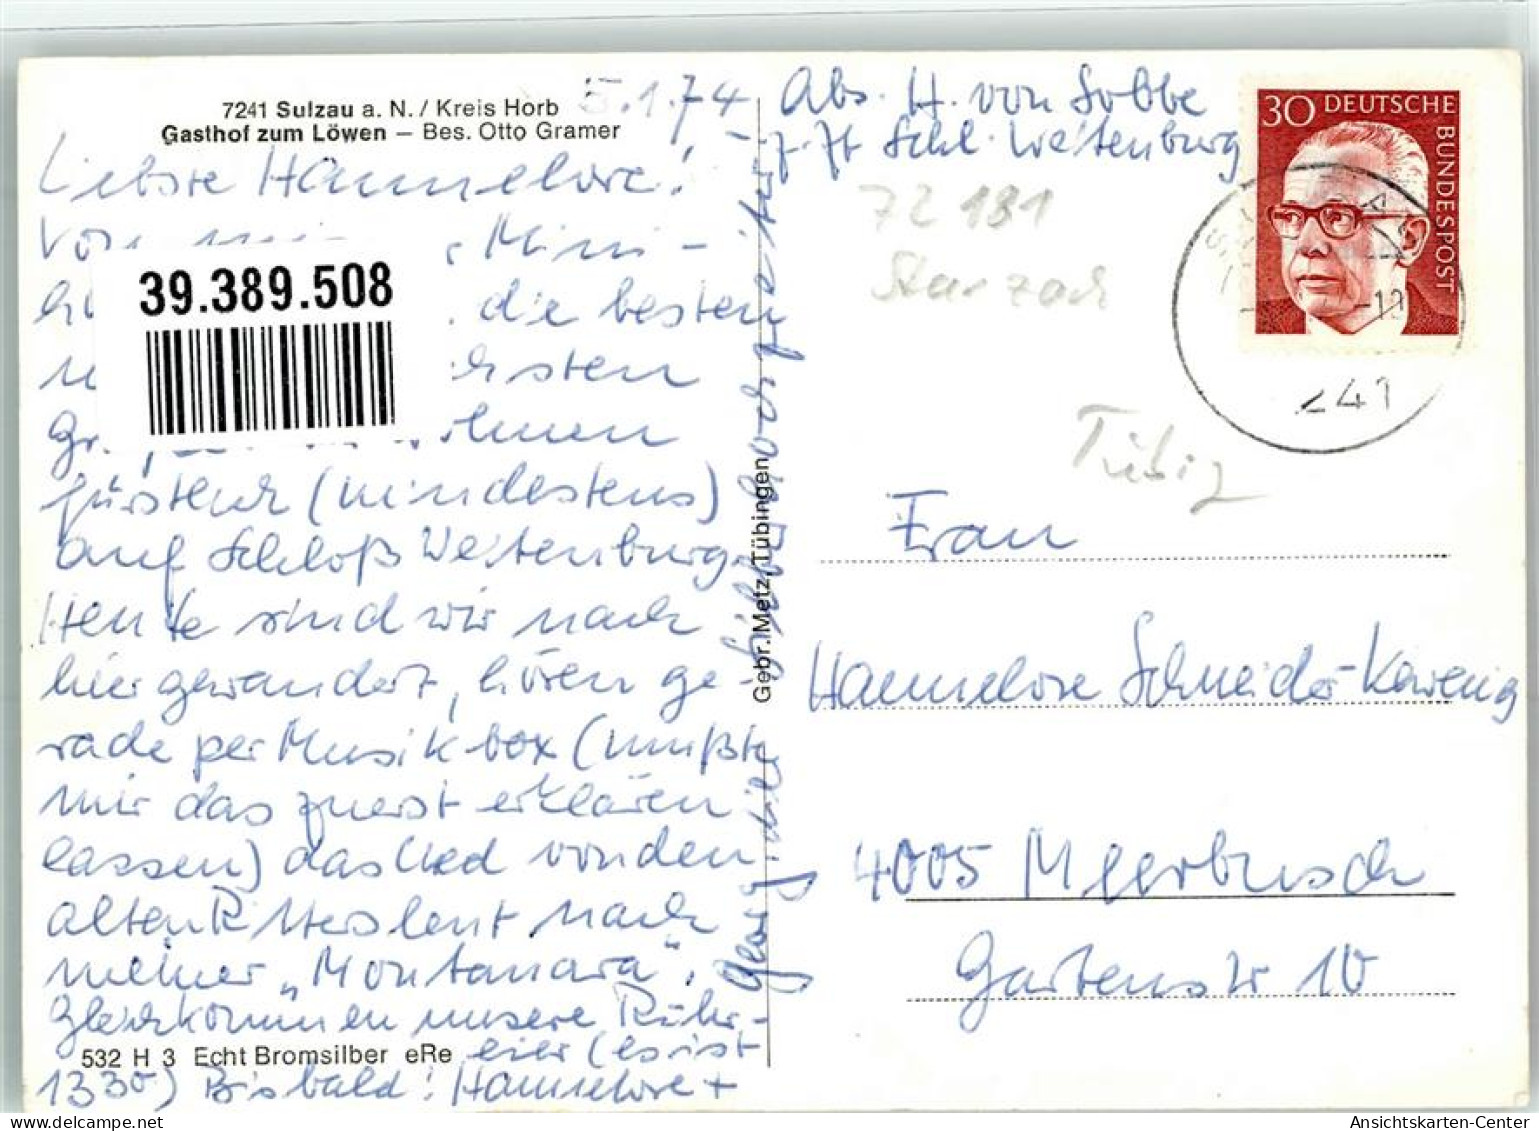 7241 Sulzau a. N. / Kreis Horb
Gasthof zum Löwen – Bes. Otto Gramer
5.1.74
Liebste Hannelore!
Von Mini-
39.389.508
die besten
Wohnen
fürstlich (mindestens)
auf Schloß Weitenburg.
Heute sind wir nach
hier gewandert, hören ge-
rade per Musikbox (mußte
mir das zuerst erklären
lassen) das Lied von den
alten Rittersleut nach
meiner „Montanara“.
Gleich kommen unsere Rühr-
eier (es ist
1330) Bis bald! Hannelore +
532 H 3 Echt Bromsilber eRe
Gebr. Metz, Tübingen
Georg, die
Abs. H. von Sobbe
z. Zt Schl. Weitenburg
72181
Starzach
Tübig
30 DEUTSCHE
BUNDESPOST
241
Frau
Hannelore Schneider-Kewenig
4005 Meerbusch
Gartenstr 10
Ansichtskarten-Center